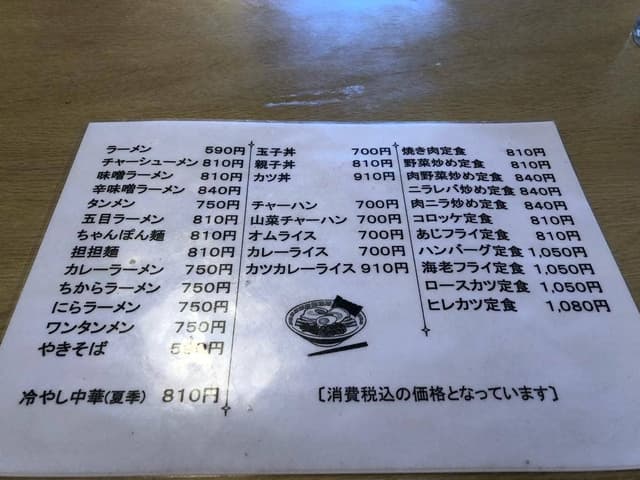 ラーメン 590円
チャーシューメン 810円
味噌ラーメン 810円
辛味噌ラーメン 840円
タンメン 750円
五目ラーメン 810円
ちゃんぽん麺 810円
担担麺 810円
カレーラーメン 750円
ちからラーメン 750円
にらラーメン 750円
ワンタンメン 750円
やきそば
冷やし中華(夏季) 810円
玉子丼 700円
親子丼 810円
カツ丼 910円
チャーハン 700円
山菜チャーハン 700円
オムライス 700円
カレーライス 700円
カツカレーライス 910円
焼き肉定食 810円
野菜炒め定食 810円
肉野菜炒め定食 840円
ニラレバ炒め定食 840円
肉ニラ炒め定食 840円
コロッケ定食 810円
あじフライ定食 810円
ハンバーグ定食 1,050円
海老フライ定食 1,050円
ロースカツ定食 1,050円
ヒレカツ定食 1,080円
[消費税込の価格となっています]